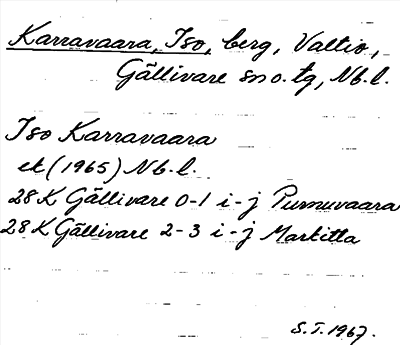 Karravaara, Iso, berg, Valtio,
Gällivare sn o. tg, Nb. l.
Iso Karravaara
ek (1965) Nb. l.
28K Gällivare 0-1 i-j Purnuvaara
28K Gällivare 2-3 i-j Markitta
S.T. 1967.